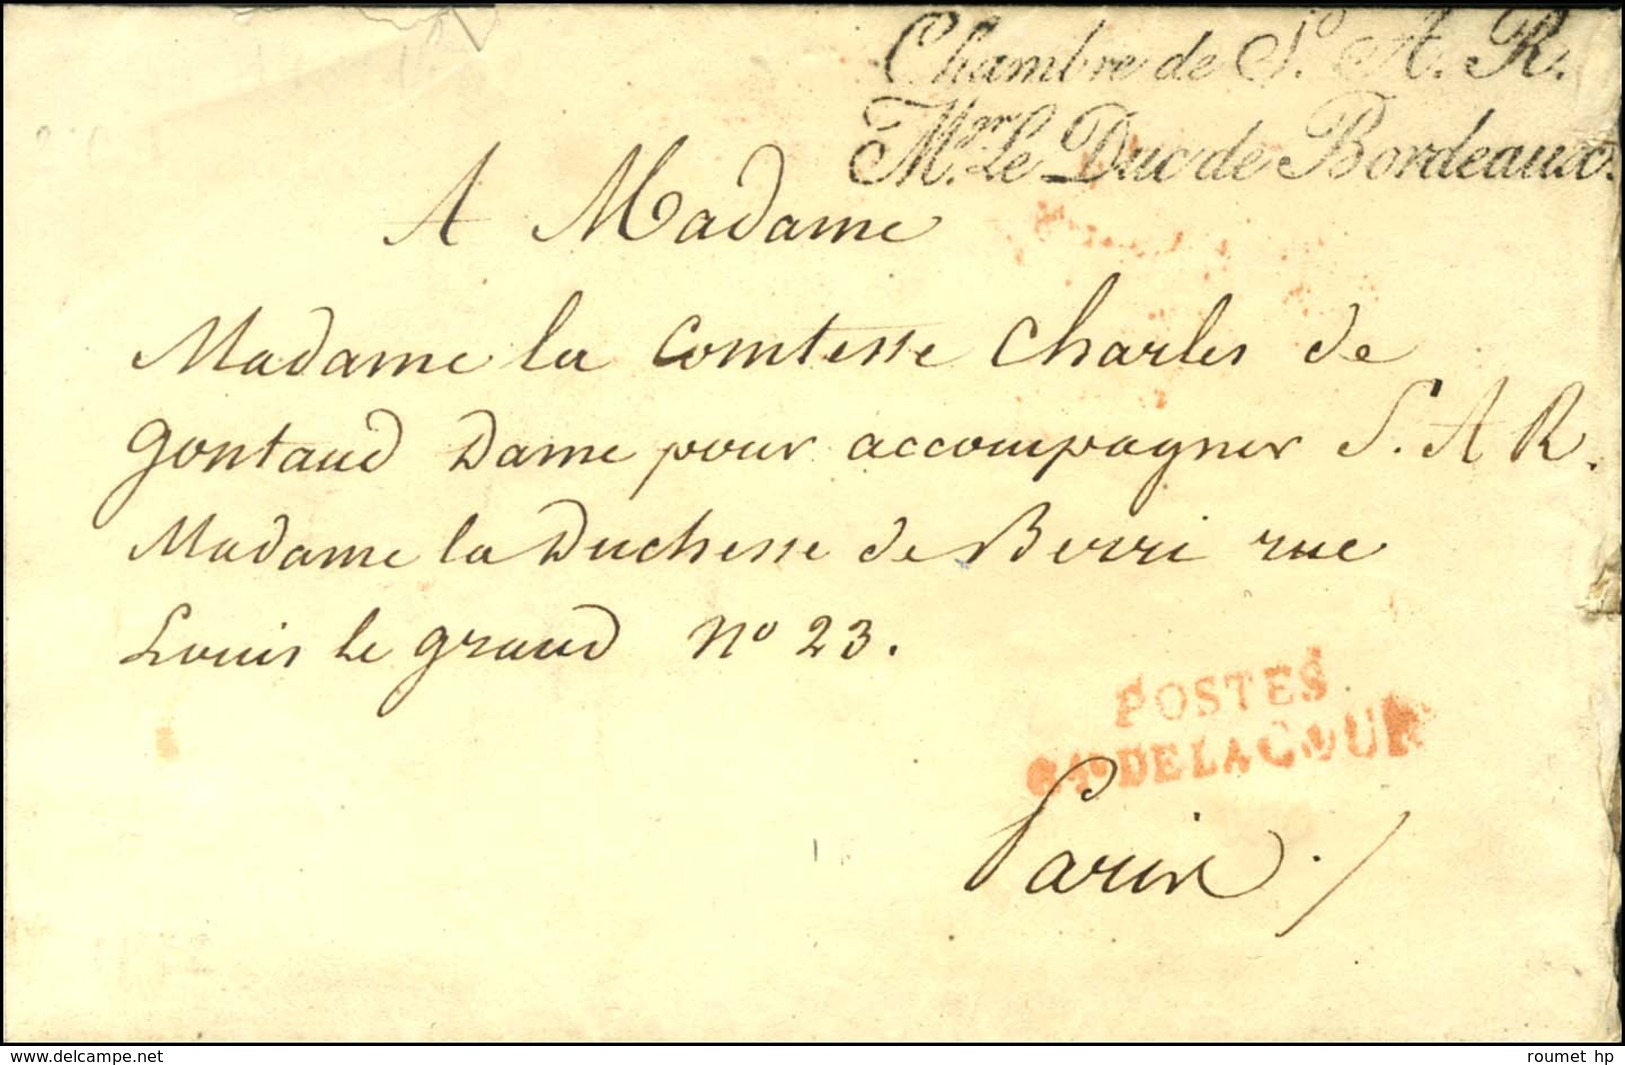 Chambre de S. A. R.
Mgr. Le Duc de Bordeaux.
A Madame
Madame la Comtesse Charles de
gontaud Dame pour accompagner S. A R.
Madame la Duchesse de Berri rue
Louis le grand No 23.
POSTES
DE LA COUR
Paris
www.delcampe.net
roumet hp